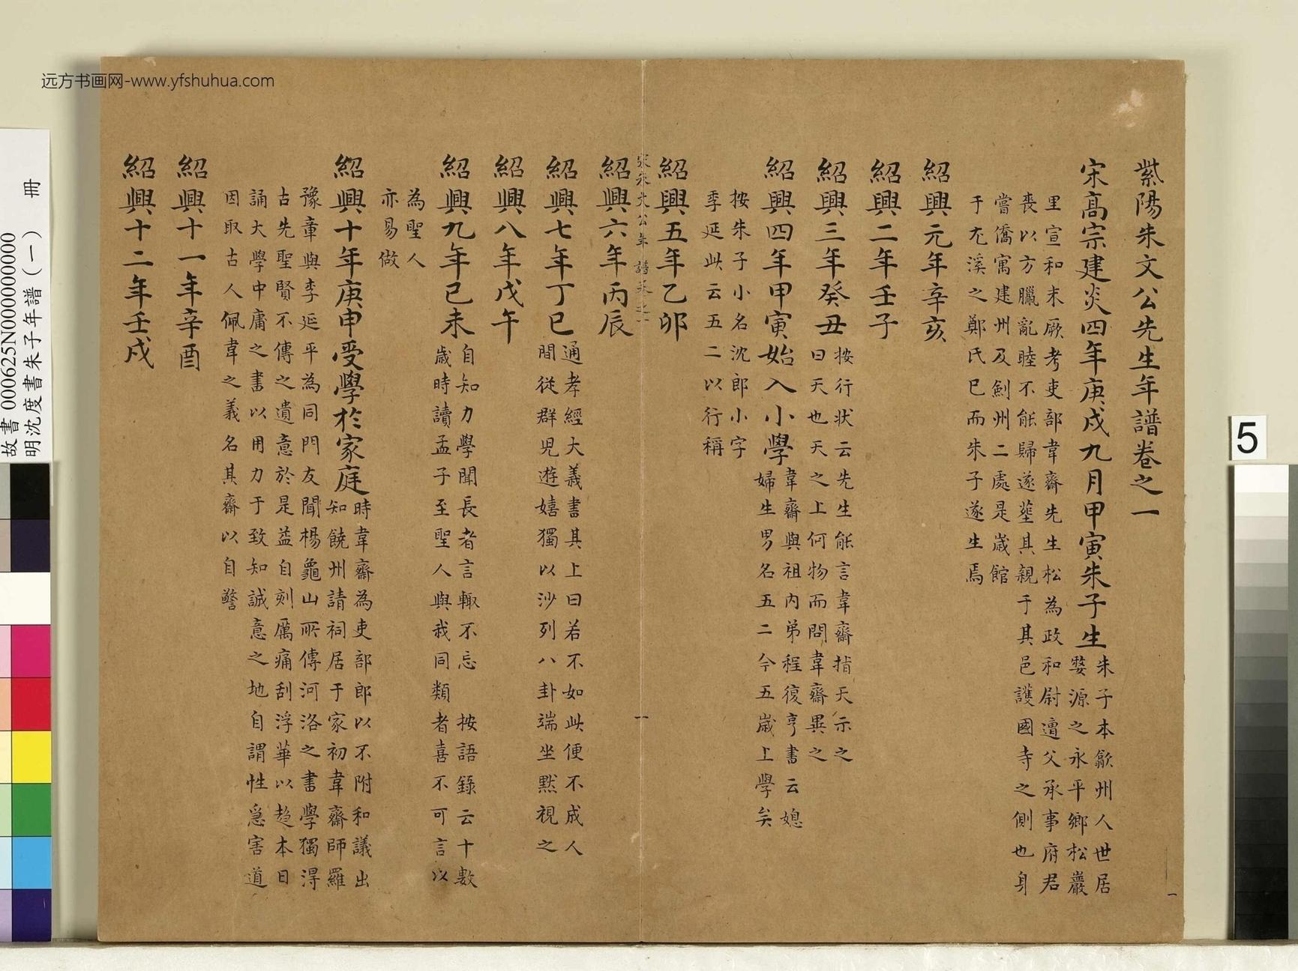 远方书画网-www.yfshuhua.com
紫陽朱文公先生年譜卷之一
宋高宗建炎四年庚戌九月甲寅朱子生
朱子本歙州人世居
婺源之永平鄉松巖
里宣和末厥考吏部韋齋先生松為政和尉遭父承事府君
喪以方臘亂睦不能歸遂塟其親于其邑護國寺之側也身
嘗僑寓建州及劍州二處是歲館
于尤溪之鄭氏已而朱子遂生焉
紹興元年辛亥
紹興二年壬子
紹興三年癸丑
按行狀云先生能言韋齋指天示之
曰天也天之上何物而問韋齋異之
紹興四年甲寅始入小學
韋齋與祖內弟程復亨書云媳
婦生男名五二今五歲上學矣
按朱子小名沈郎小字
季延此云五二以行稱
紹興五年乙卯
宋朱文公年譜卷之一
一
紹興六年丙辰
紹興七年丁巳
通孝經大義書其上曰若不如此便不成人
間從群兒遊嬉獨以沙列八卦端坐黙視之
紹興八年戊午
紹興九年已未
自知力學聞長者言輙不忘 按語錄云十數
歲時讀孟子至聖人與我同類者喜不可言以
為聖人
亦易做
紹興十年庚申受學於家庭
時韋齋為吏部郎以不附和議出
知饒州請祠居于家初韋齋師羅
豫章與李延平為同門友聞楊龜山所傳河洛之書學獨淂
古先聖賢不傳之遺意於是益自刻厲痛刮浮華以趋本日
誦大學中庸之書以用力于致知誠意之地自謂性急害道
因取古人佩韋之義名其齋以自警
紹興十一年辛酉
紹興十二年壬戌
一
故書 000625N000000000 冊
明沈度書朱子年譜(一)
5